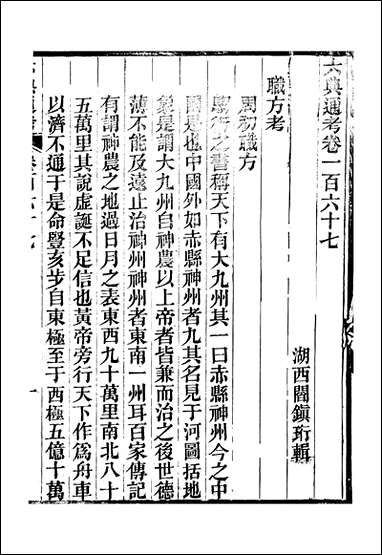 六典通考卷一百六十七
湖西閻鎭珩輯
職方考
周初職方
鄒衍之書稱天下有大九州其一曰赤縣神州今之中
國是也中國外如赤縣神州者九其名見于河圖括地
象是謂大九州自神農以上帝者皆兼而治之後世德
薄不能及遠止治神州神州者東南一州耳百家傳記
有謂神農之地過日月之表東西九十萬里南北八十
五萬里其說虛誕不足信也黃帝旁行天下作爲舟車
以濟不通于是命豎亥步自東極至于西極五億十萬
六典通考
卷百六十七
一